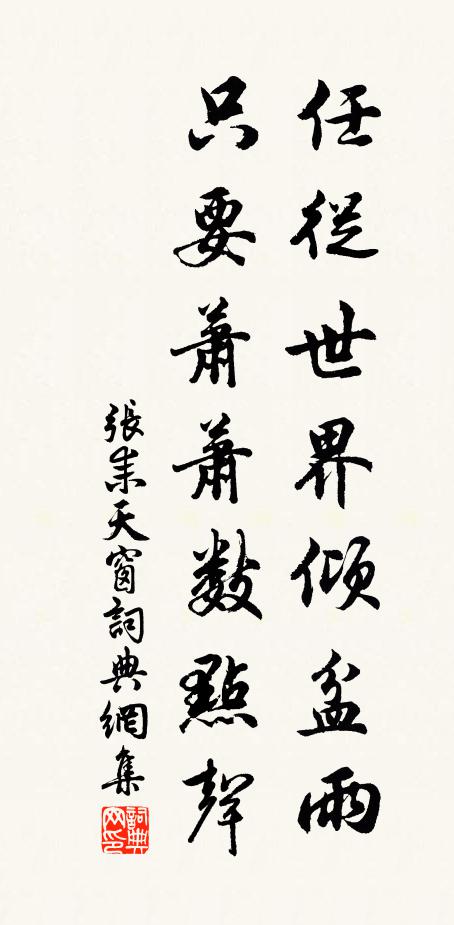 任從世界傾盆雨
只要蕭蕭數點聲
張耒天窗詞典網集
詞典
网印